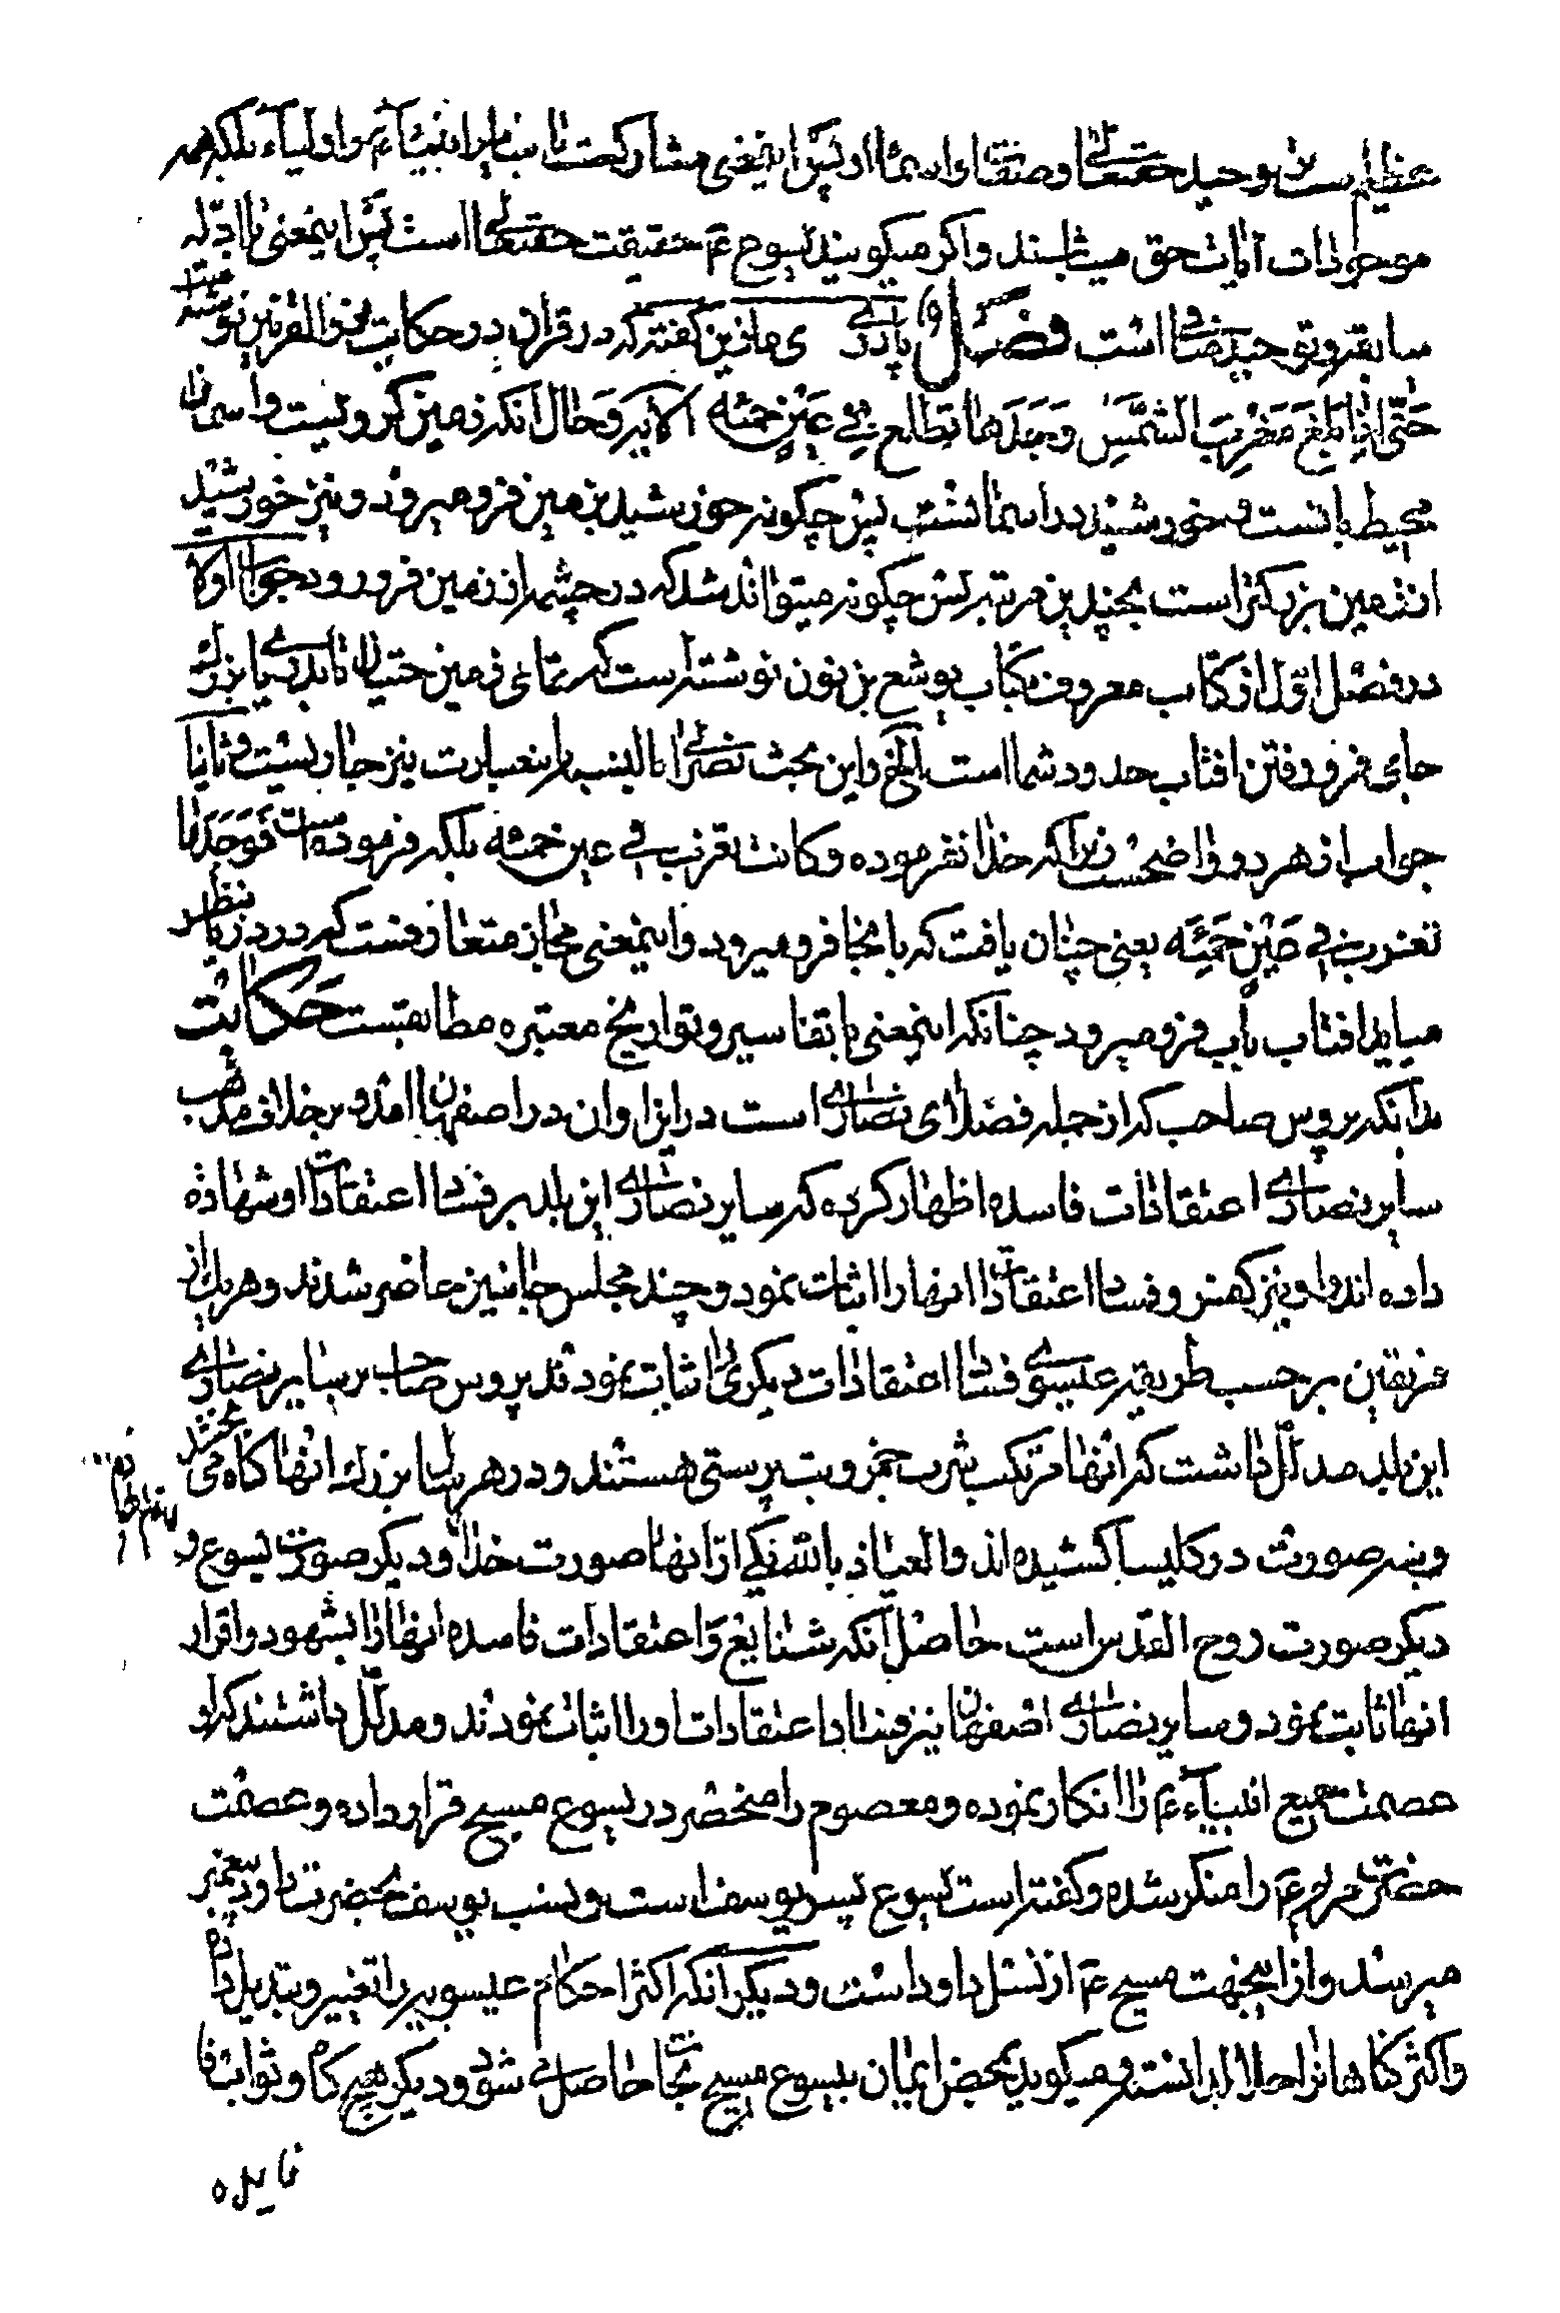 عظیم است بر توحید حقتعالی و صفات و اسماء او پس اینمعنی مشارکت با سایر انبیآء و اولیآء بلکه همه
موجودات آیات حق میباشند و اگر میگویند یسوع ع حقیقت حقتعالی است پس اینمعنی با ادلّه
سابقه و توحید منافی است فصل پادری مارتین گفته که در قران در حکایت ذوالقرنین نوشته
حَتّی اِذا بَلَغَ مَغْرِبَ الشَّمْسِ وَجَدَها تطلع فی عَیْنٍ حَمِئَه الآیه وَ حال آنکه زمین کرویست و آسمان
محیط بآنست و خورشید در آسمانست پس چگونه خورشید بزمین فرو میرود و نیز خورشید
از زمین بزرگتر است بچندین مرتبه پس چگونه میتواند شد که در چشمه از زمین فرو رود جواب اولا
در فصل اوّل از کتاب معروف بکتاب یوشع بن نون نوشته است که تمامی زمین حتیان تا بدریای بزرگ
جای فرو رفتن افتاب حدود شما است الخ و این بحث نصاری بالنسبه باینعبارت نیز جاریست و ثانیا
جواب از هر دو واضحست زیرا که خدا نفرموده و کانت تغرب فی عین حمئه بلکه فرموده است فَوَجَدَها
تغرب فی عَیْنٍ حَمِئَه یعنی چنان یافت که بآنجا فرو میرود و اینمعنی مجاز متعارفست که در دریا بنظر
میاید افتاب بآب فرو میرود چنانکه اینمعنی با تفاسیر و تواریخ معتبره مطابقست حکایت
بدانکه بروس صاحب که از جمله فضلای نصاری است در این اوان در اصفهان آمد و بر خلاف مذهب
سایر نصاری اعتقادات فاسده اظهار کرده که سایر نصاری این بلد بر فساد اعتقادات او شهادة
داده اند و او نیز کفر و فساد اعتقادات انها را اثبات نمود و چند مجلس جانبین حاضر شدند و هر یک از
فریقین بر حسب طریقه عیسوی فساد اعتقادات دیگری را اثبات نمودند بروس صاحب بر سایر نصاری
این بلد مدلّل داشت که انها مرتکب شرب خمر و بت پرستی هستند و در هر سال بزرک انها گناه می بخشد
و سه صورت در کلیسا کشیده اند و العیاذ بالله یکی از انها صورت خدا و دیگر صورت یسوع و
دیگر صورت روح القدس است حاصل آنکه شنایع و اعتقادات فاسده انها را بشهود و اقرار
انها ثابت نمود و سایر نصاری اصفهان نیز فساد اعتقادات او را اثبات نمودند و مدلّل داشتند که او
عصمت جمیع انبیآء ع را انکار نموده و معصوم را منحصر در یسوع مسیح قرار داده و عصمت
حضرت مریم ع را منکر شده و گفته است یسوع پسر یوسف است و نسب یوسف بحضرت داود پیغمبر
میرسد و از اینجهت مسیح ع از نسل داود است و دیگر آنکه اکثر احکام عیسویه را تغییر و تبدیل داده
و اکثر گناهان را حلال دانسته و میگوید بمحض ایمان بیسوع مسیح نجات حاصل می شود و دیگر هیچ گناه و ثواب
فایده